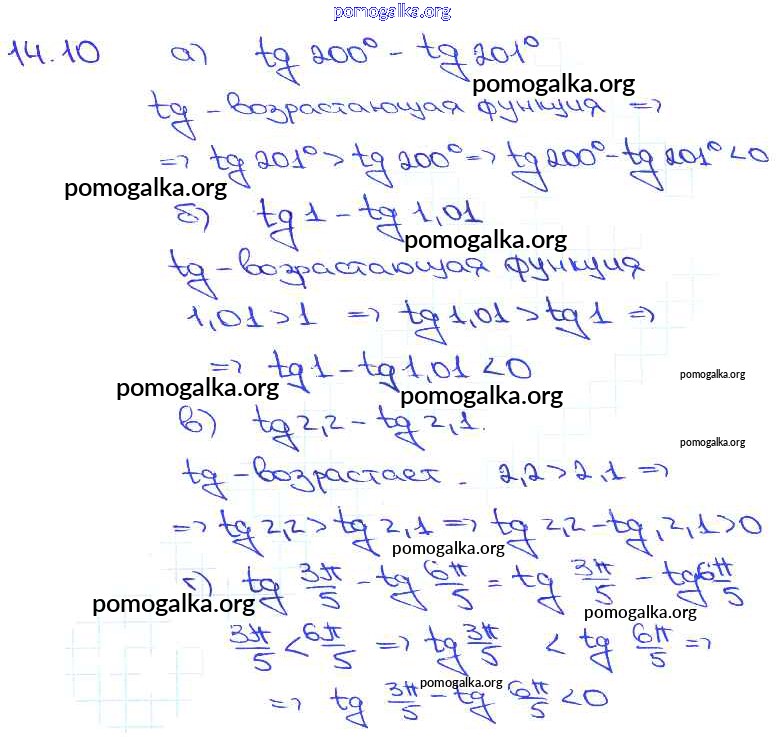 pomogalka.org
14.10 а) tg 200° - tg 201°
pomogalka.org
tg - возрастающая функция =>
=> tg 201° > tg 200° => tg 200° - tg 201° < 0
pomogalka.org
б) tg 1 - tg 1,01
pomogalka.org
tg - возрастающая функция
1,01 > 1 => tg 1,01 > tg 1 =>
=> tg 1 - tg 1,01 < 0
pomogalka.org
pomogalka.org
pomogalka.org
в) tg 2,2 - tg 2,1.
pomogalka.org
tg - возрастает. 2,2 > 2,1 =>
=> tg 2,2 > tg 2,1 => tg 2,2 - tg, 2,1 > 0
pomogalka.org
г) tg 3π/5 - tg 6π/5 = tg 3π/5 - tg 6π/5
pomogalka.org
pomogalka.org
3π/5 < 6π/5 => tg 3π/5 < tg 6π/5 =>
pomogalka.org
=> tg 3π/5 - tg 6π/5 < 0